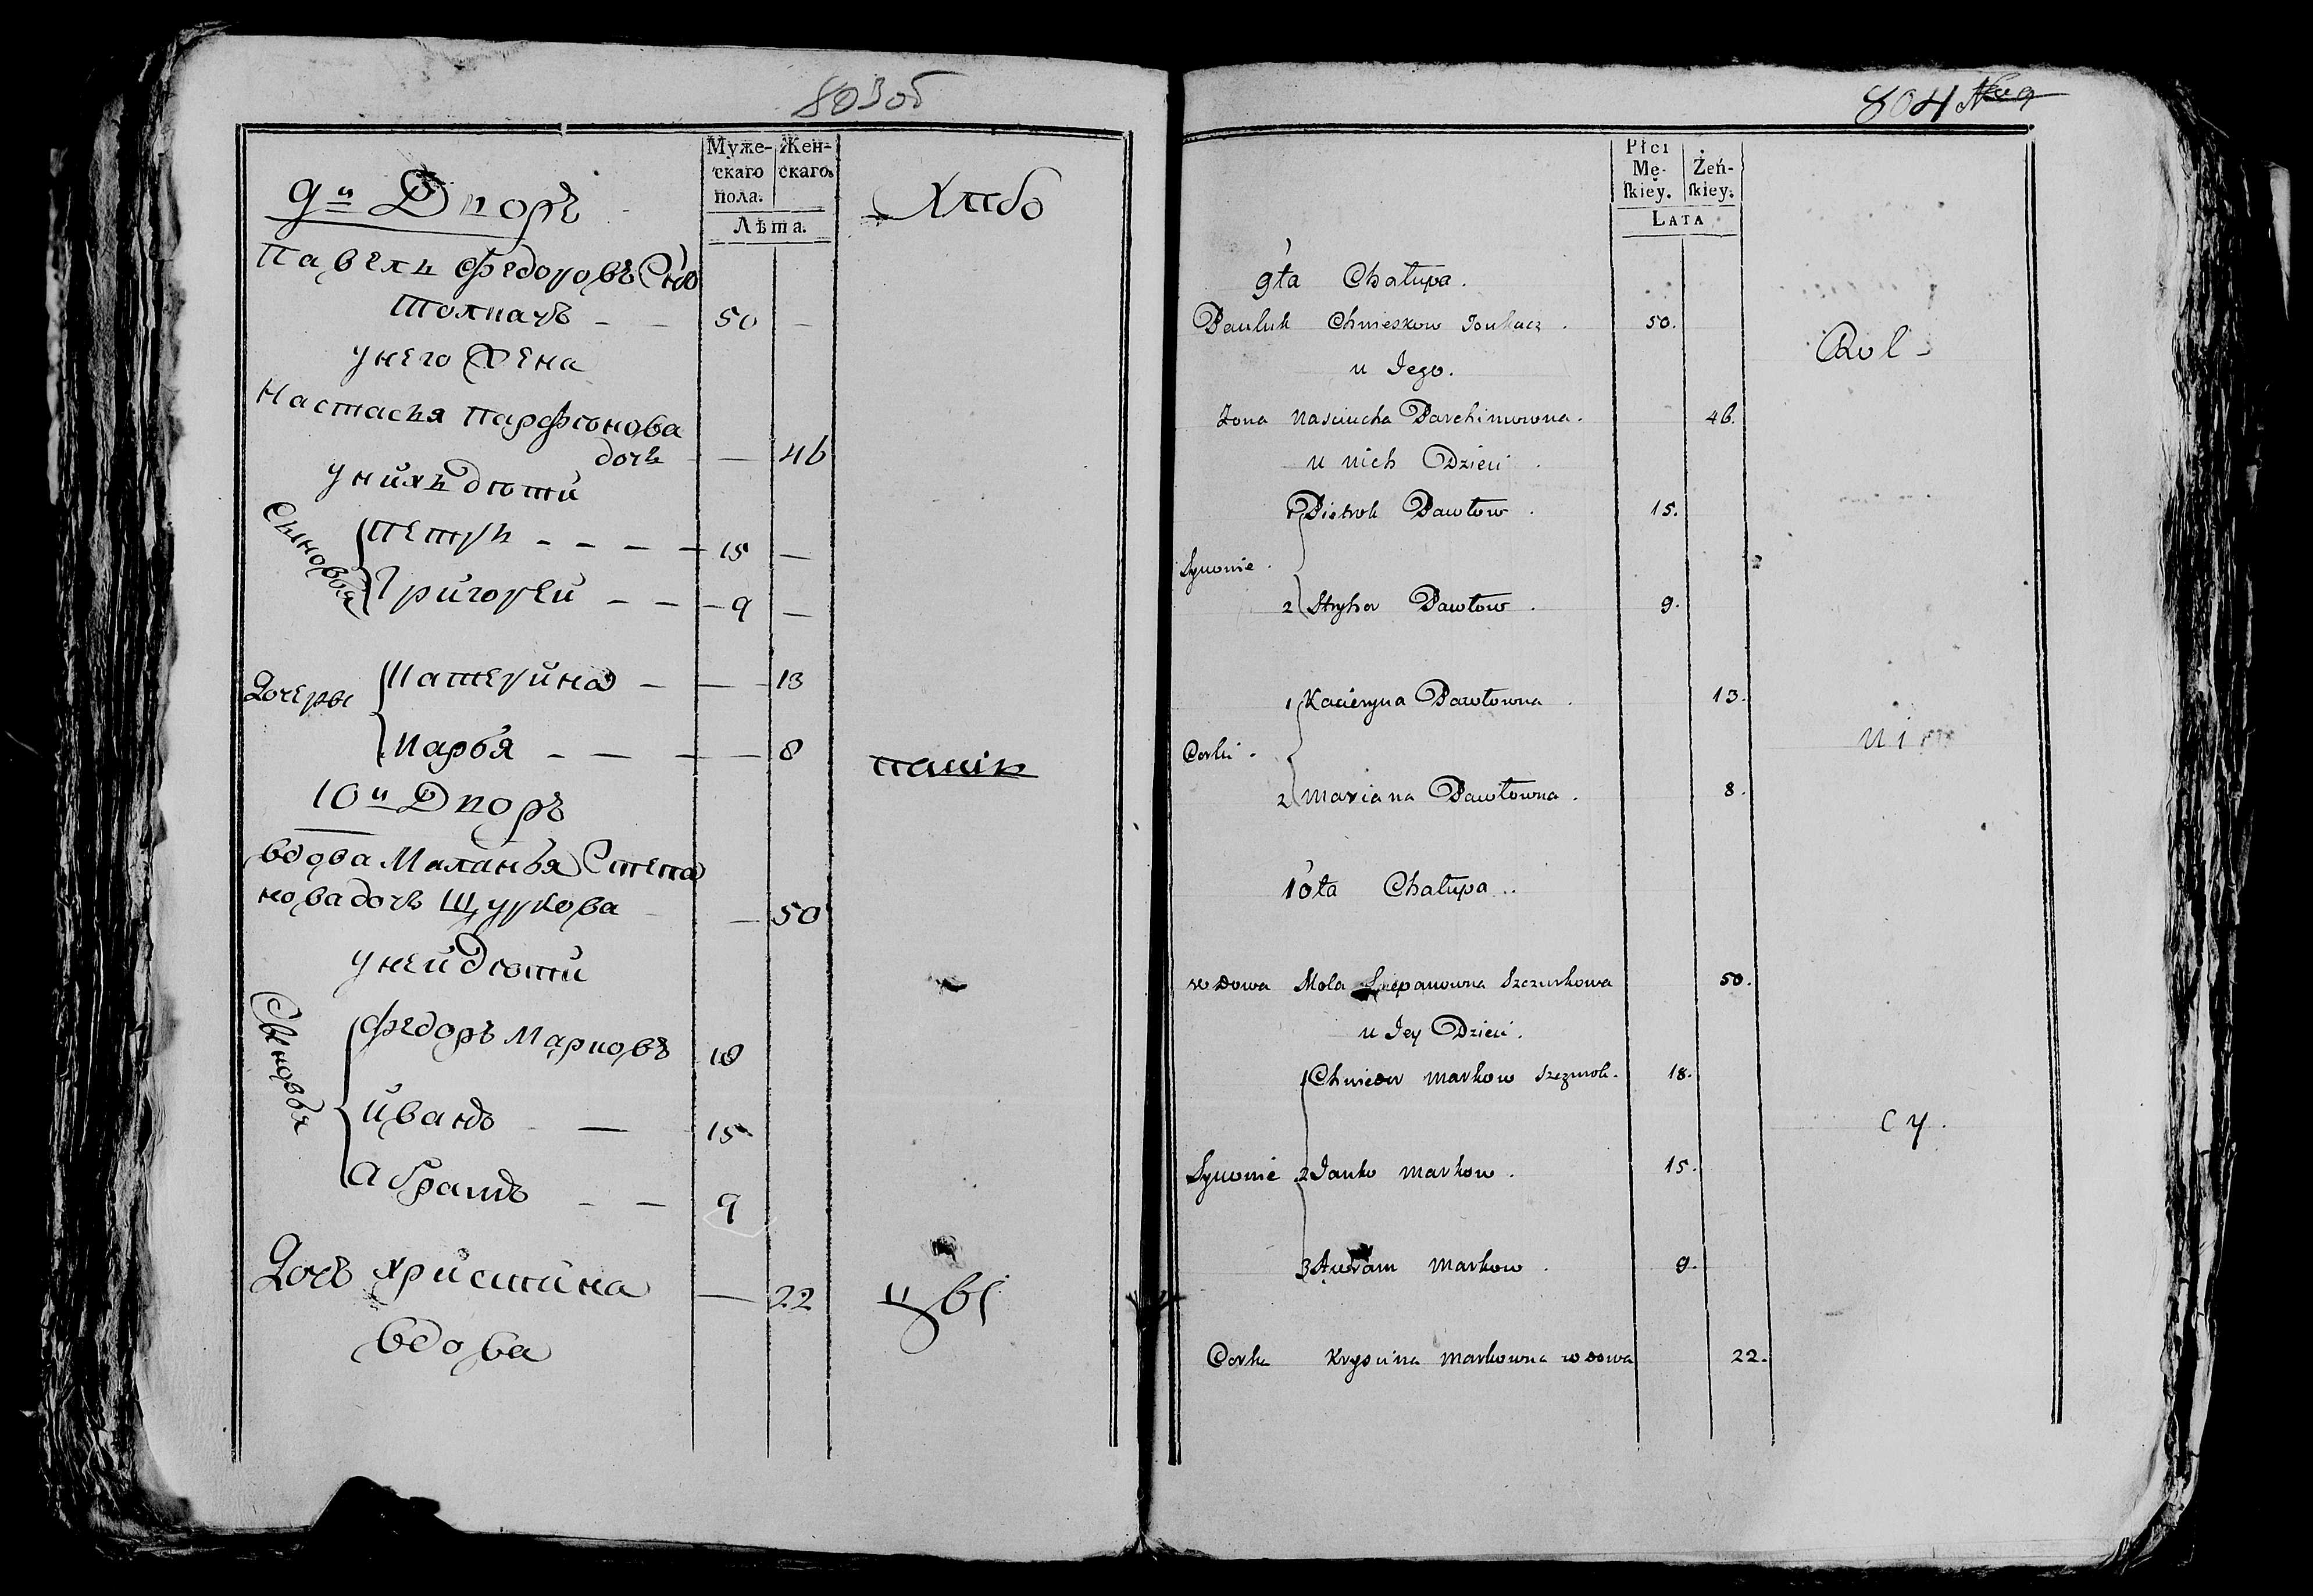 803об
Муже-
скаго
пола.
Жен-
скаго.
Лѣта.
9й Дворъ
Хлѣбо
Павелъ Федоровъ
50
у него Жена
Настасья Парфіонова
дочь 46
у нихъ дѣти
Сыновья
Петръ 15
Григорей 9
Дочеры
Катерина 13
Марья 8
паш
10й Дворъ
вдова Маланья Степа
нова дочь Щуркова 50
у ней дѣти
Сыновья
Федоръ Марковъ 18
Иванъ 15
Абрамъ 9
Дочь Христина 22 цы
вдова
804
Płci
Mę-
ſkiey.
Żeń-
ſkiey.
Lata
9ta Chałupa.
Pauluk Chwieskow 50.
Rol-
u Jego.
Żona Nasciucha Parchimowna. 46.
u nich Dzieci
1 Pietrok Pawłow. 15.
Synowie.
2 Hryhor Pawłow. 9.
1 Kacieryna Pawłowna. 13.
ni
Corki.
2 Mariana Pawłowna. 8.
10ta Chałupa.
wdowa Mola Sciepanowna Szczurkowa 50.
u Jey Dzieci.
1 Chwiedor Markow 18.
cy.
Synowie 2 Janko Markow. 15.
3 Awram Markow. 9.
Corka Kryscina Markowna wdowa 22.